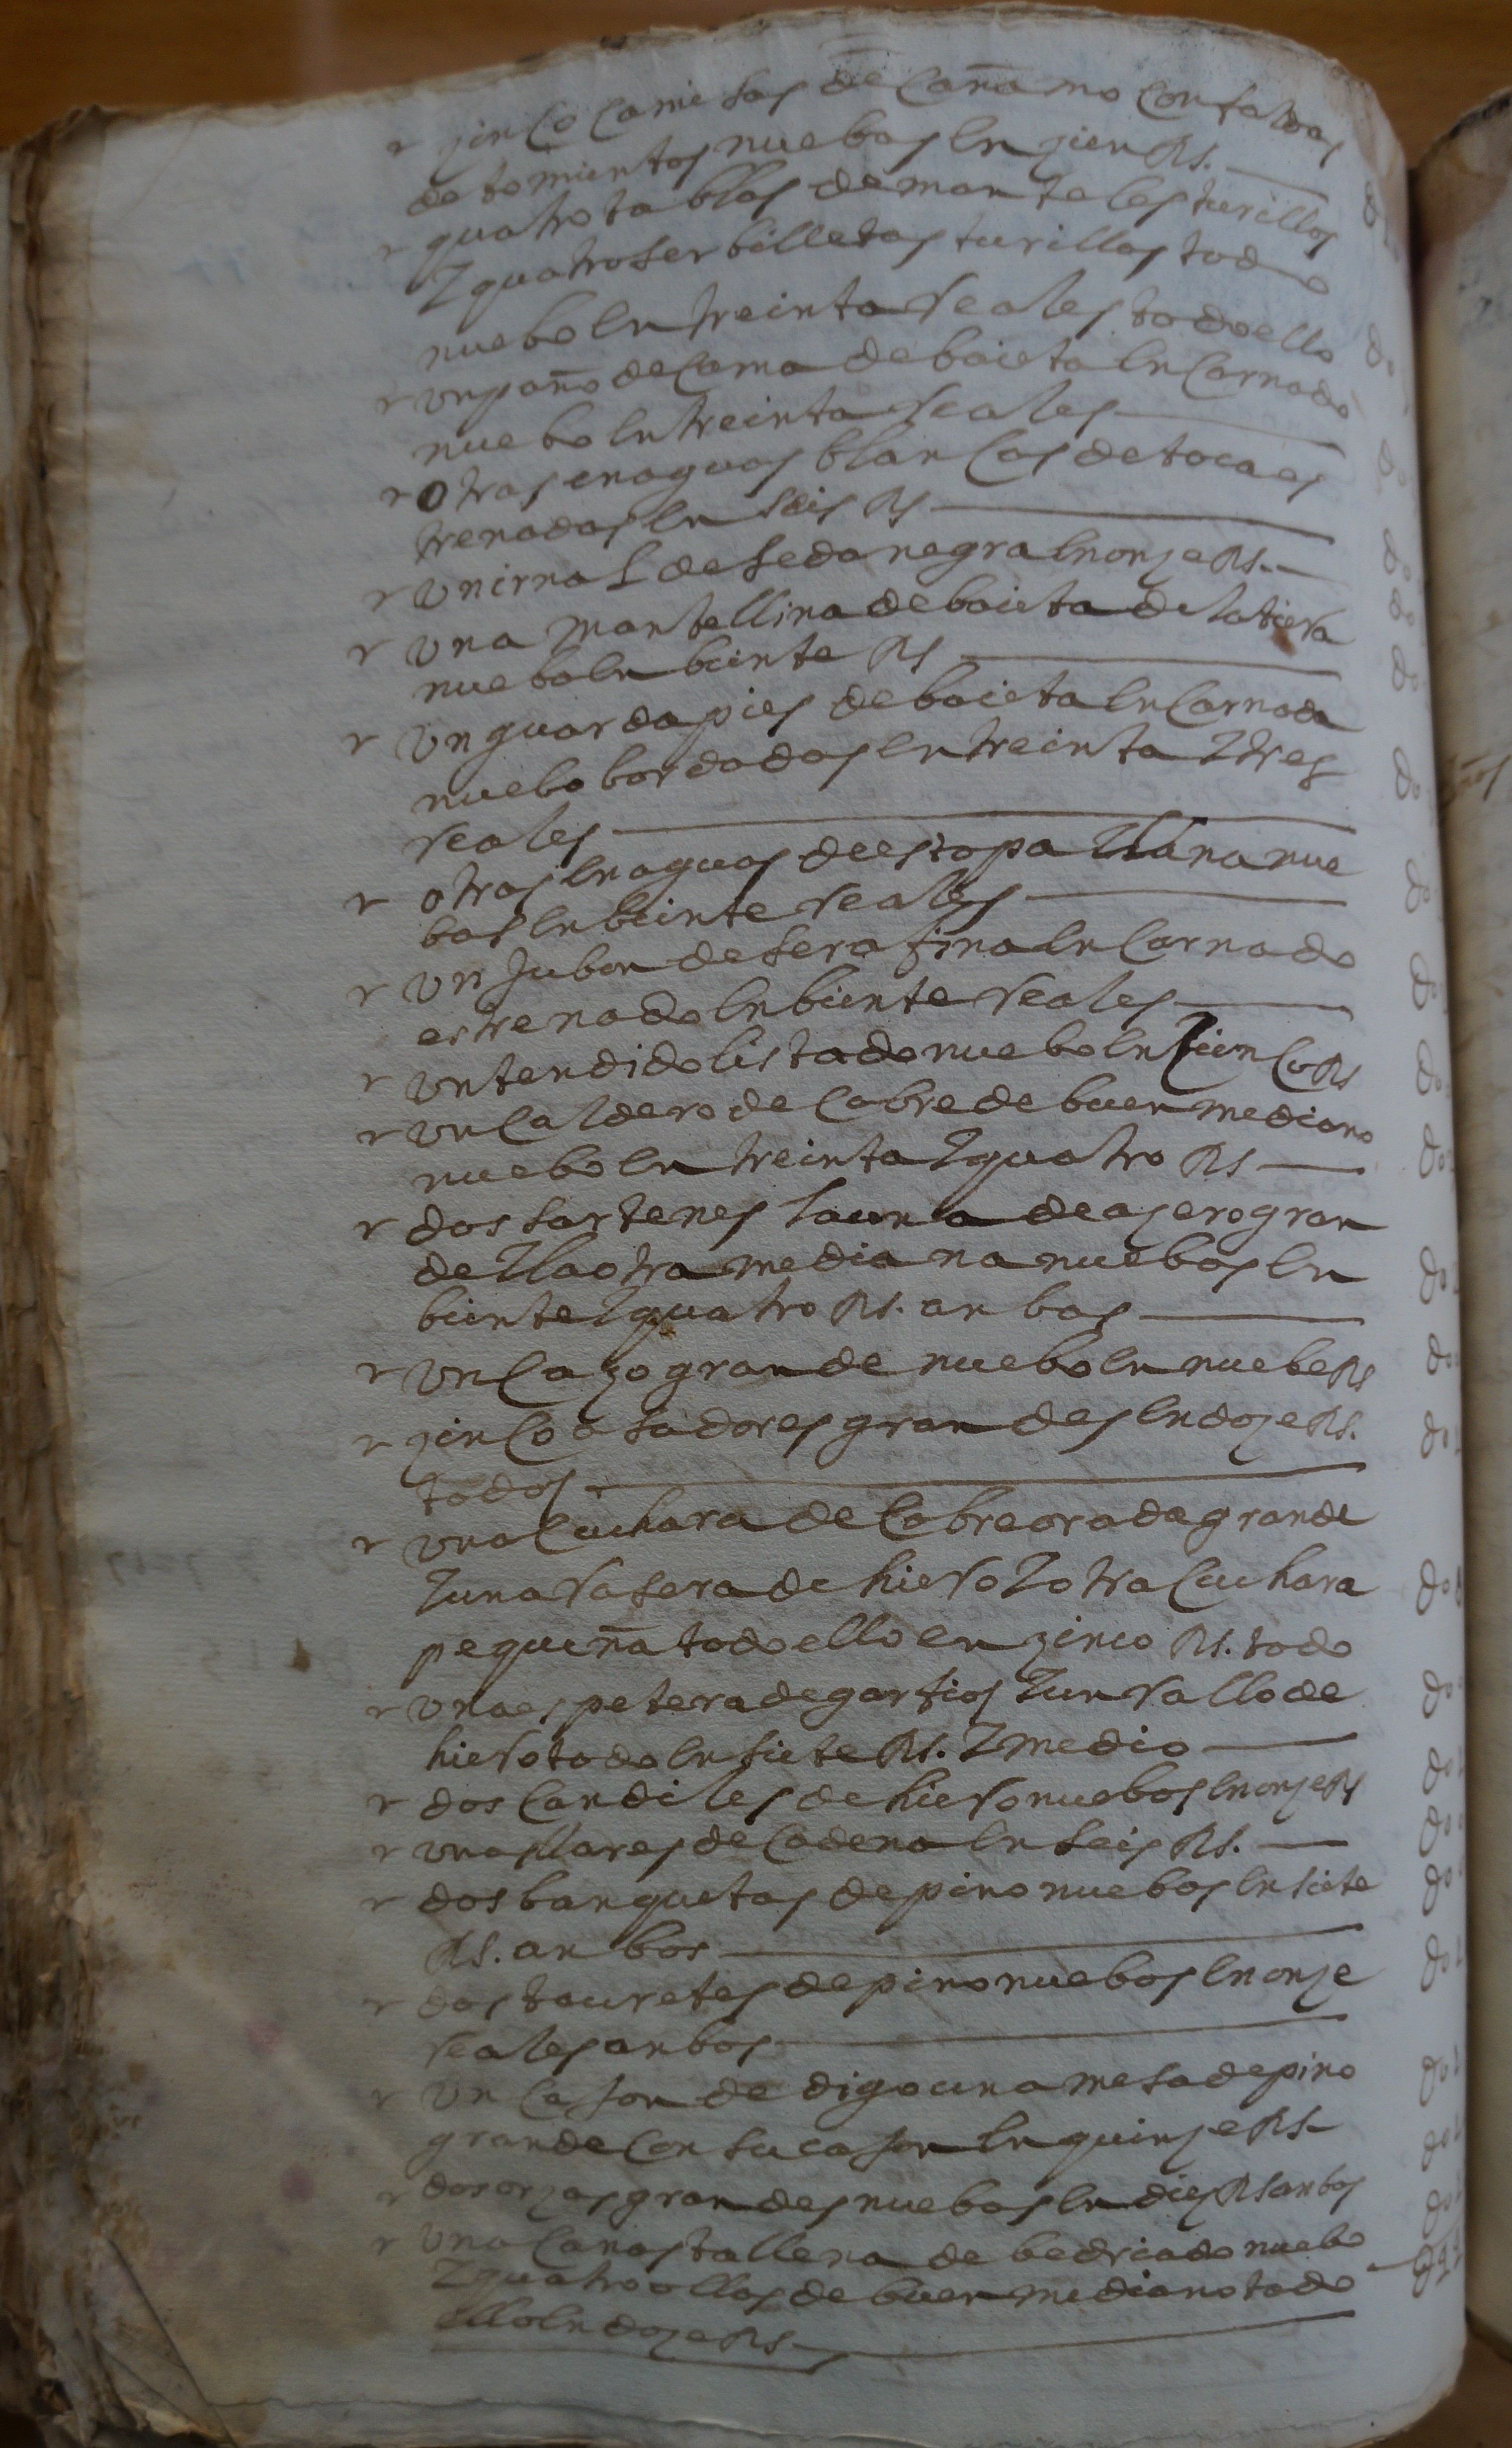 zinco camisas de cañamo con faldas
de tomientos nuebas en zien Rs.
quatro tablas de manteles turillos
Y quatro serbilletas turillas todo
nuebo en treinta reales todo ello
un paño de cama de baieta encarnado
nuebo en treinta reales
otras enaguas blancas de toca es
trenadas en seis Rs
un irnal de seda negra en onze Rs.
una mantellina de baieta de la tiera
nueba en biente Rs
un guardapies de baieta encarnada
nuebo bordadas en treinta Y tres
reales
otras enaguas de estopa Y lana nue
bas en beinte reales
un Jubon de serafina encarnado
estrenado en biente reales
un tendido listado nuebo en zinco Rs
un caldero de cobre de buen mediano
nuebo en treinta Y quatro Rs
dos sartenes la una de azero gran
de Y la otra mediana nuebas en
biente Y quatro Rs. anbas
un cazo grande nuebo en nuebe Rs
zinco asadores grandes en doze Rs.
todos
una cuchara de cobre orada grande
Y una rasera de hiero Y otra cuchara
pequeña todo ello en zinco Rs. todo
una espetera de garfios Y un rallo de
hiero todo en siete Rs. Y medio
dos candiles de hiero nuebos en onze Rs
unas llares de cadena en seis Rs.
dos banquetas de pino nuebas en siete
Rs. anbos
dos tauretes de pino nuebos en onze
reales anbos
un cason de digo una mesa de pino
grande con su cason en quinze Rs
dos orzas grandes nuebas en diez Rs anbos
una canasta llena de bedriado nuebo
Y quatro ollas de buen mediano todo
ello en doze Rs